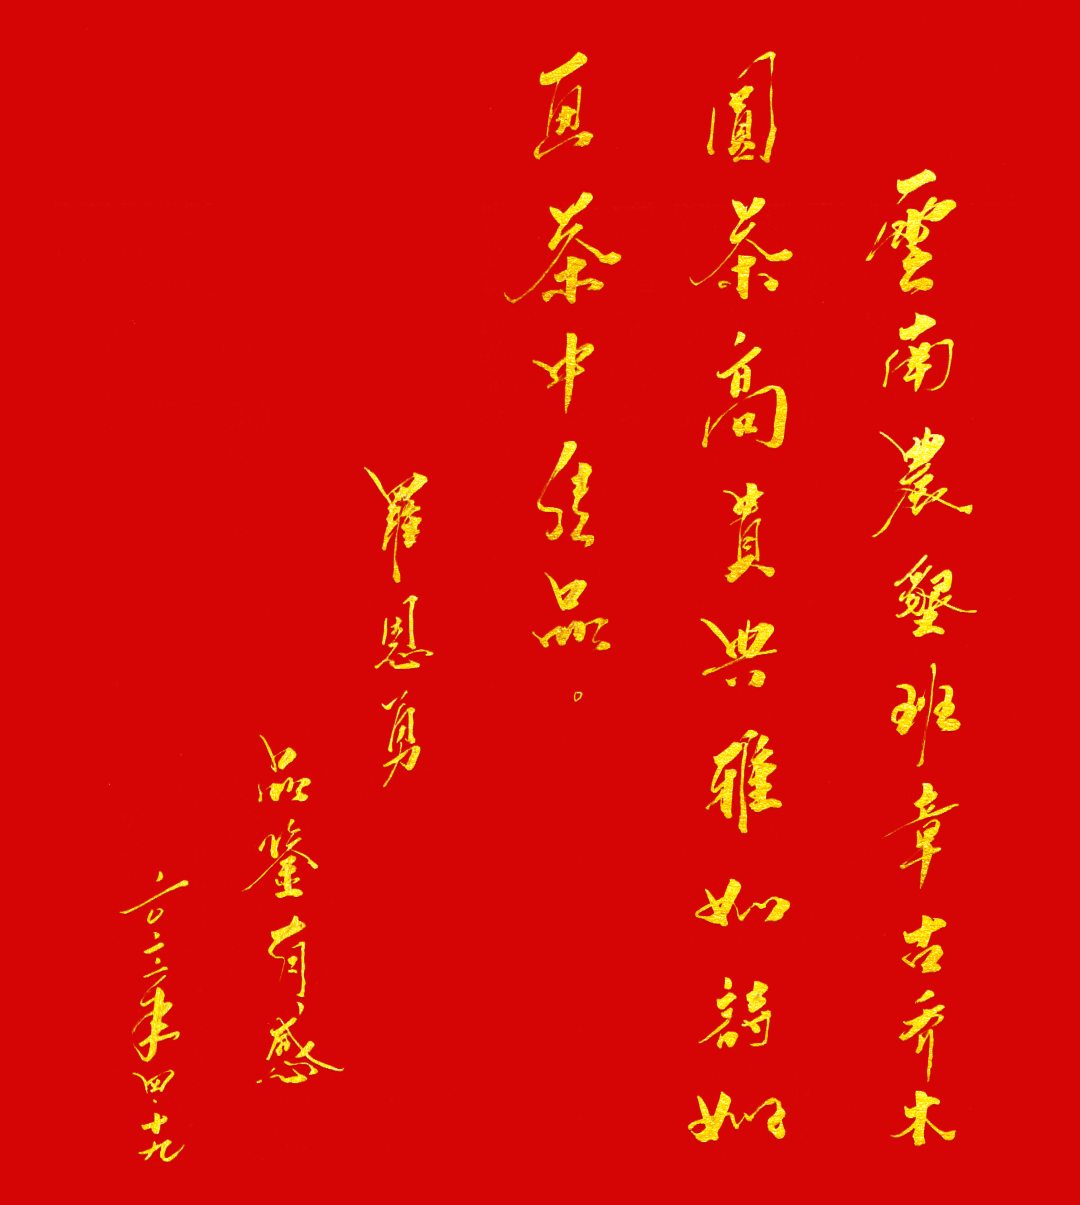 雲南農墾班章古乔木
圓茶高貴典雅如詩如
画茶中佳品。
羅恩勇
品鉴有感
二〇二二年四.十九